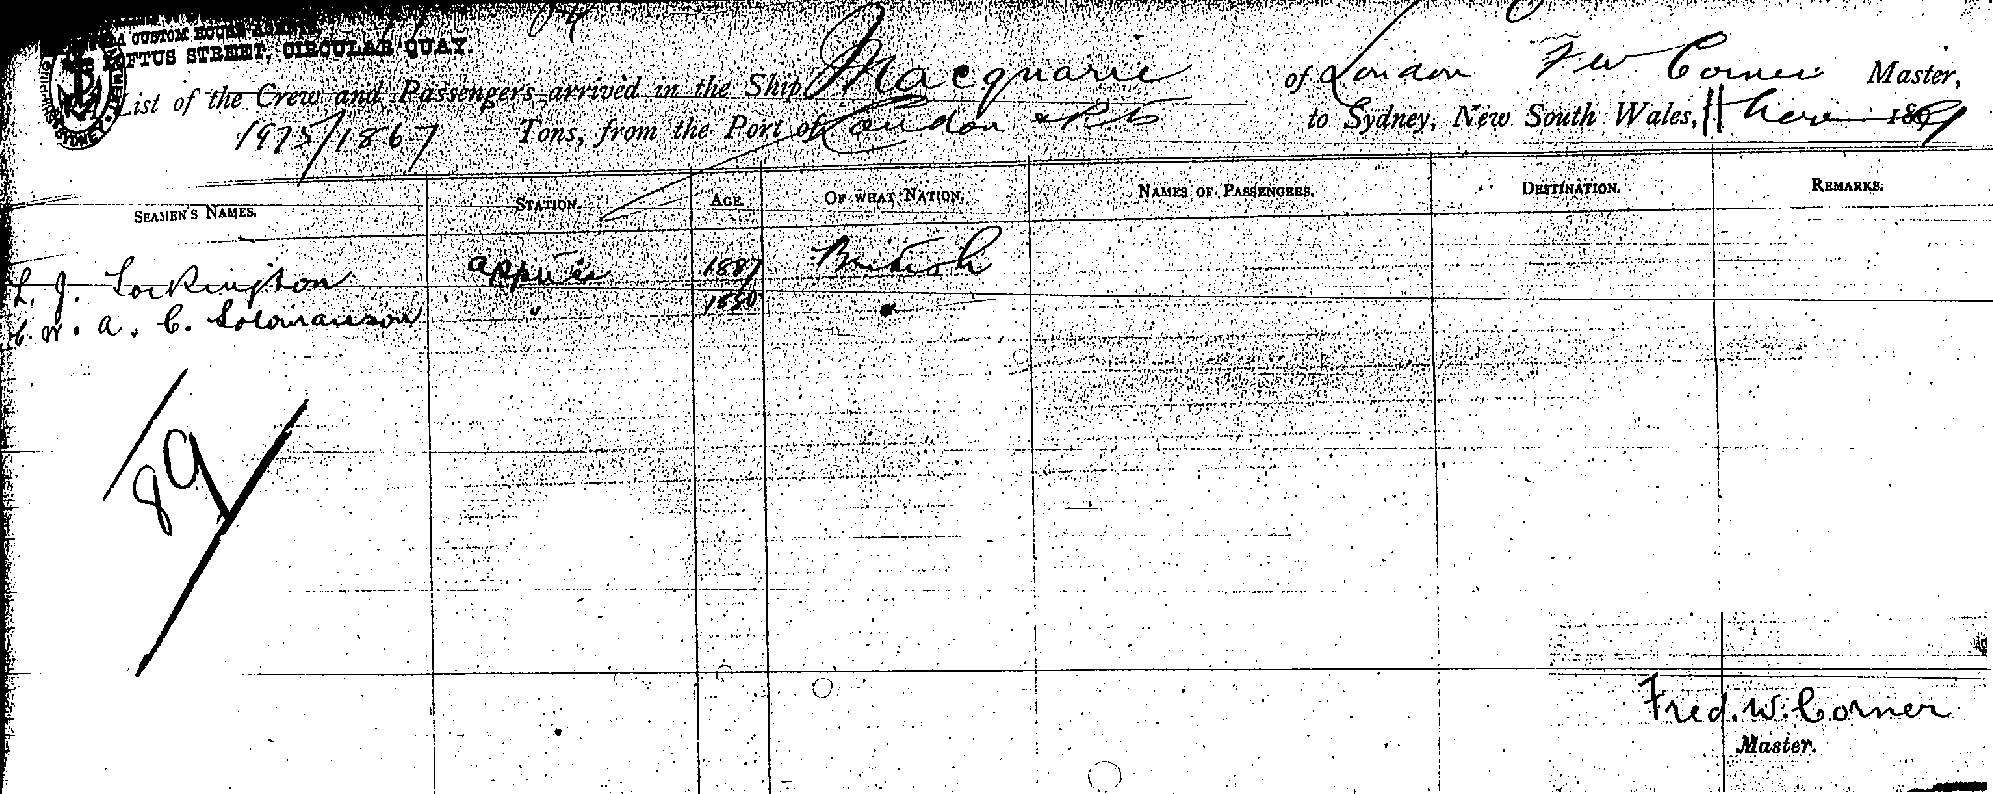 CUSTOM HOUSE
LOFTUS STREET, CIRCULAR QUAY.
List of the Crew and Passengers arrived in the Ship Macquarie of London F W Corner Master,
1975/1867 Tons, from the Port of London to Sydney, New South Wales, 11 Nov 189
SEAMEN'S NAMES. STATION. AGE. OF WHAT NATION. NAMES OF PASSENGERS. DESTINATION. REMARKS.
L. J. Lockington app'ce 1887 British
W. A. C. Solomanson " 1880 "
89
Fred. W. Corner
Master.